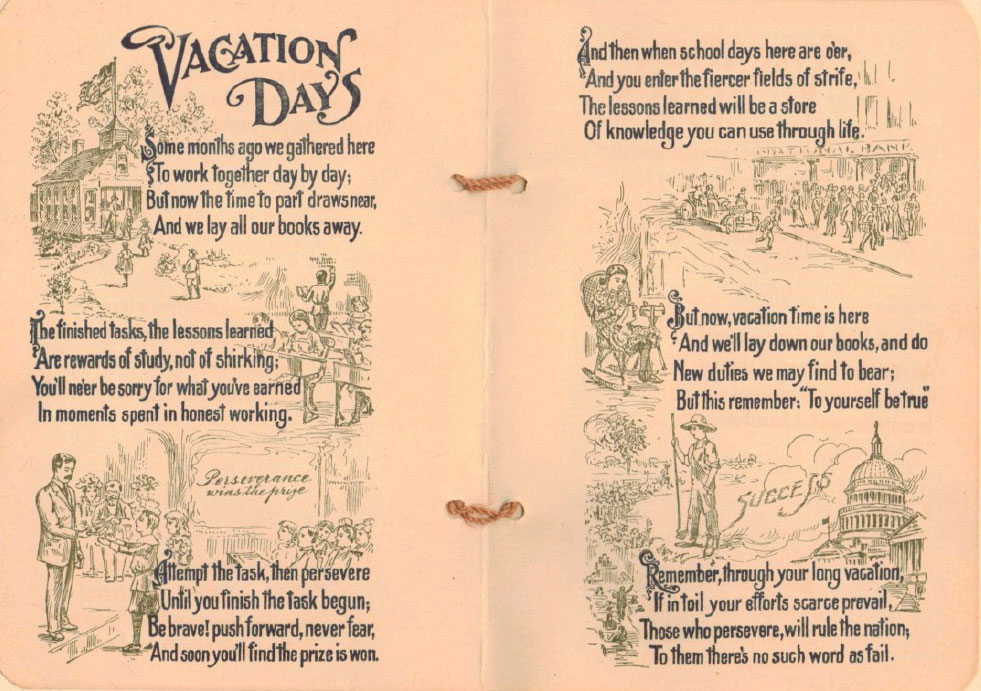 VACATION
DAYS
Some months ago we gathered here
To work together day by day;
But now the time to part draws near,
And we lay all our books away.
The finished tasks, the lessons learned
Are rewards of study, not of shirking;
You'll ne'er be sorry for what you've earned
In moments spent in honest working.
Perseverance
wins the prize
Attempt the task, then persevere
Until you finish the task begun;
Be brave! push forward, never fear,
And soon you'll find the prize is won.
And then when school days here are o'er,
And you enter the fiercer fields of strife,
The lessons learned will be a store
Of knowledge you can use through life.
NATIONAL BANK
But now, vacation time is here
And we'll lay down our books, and do
New duties we may find to bear;
But this remember: "To yourself be true"
SUCCESS
Remember, through your long vacation,
If in toil your efforts scarce prevail,
Those who persevere, will rule the nation;
To them there's no such word as fail.